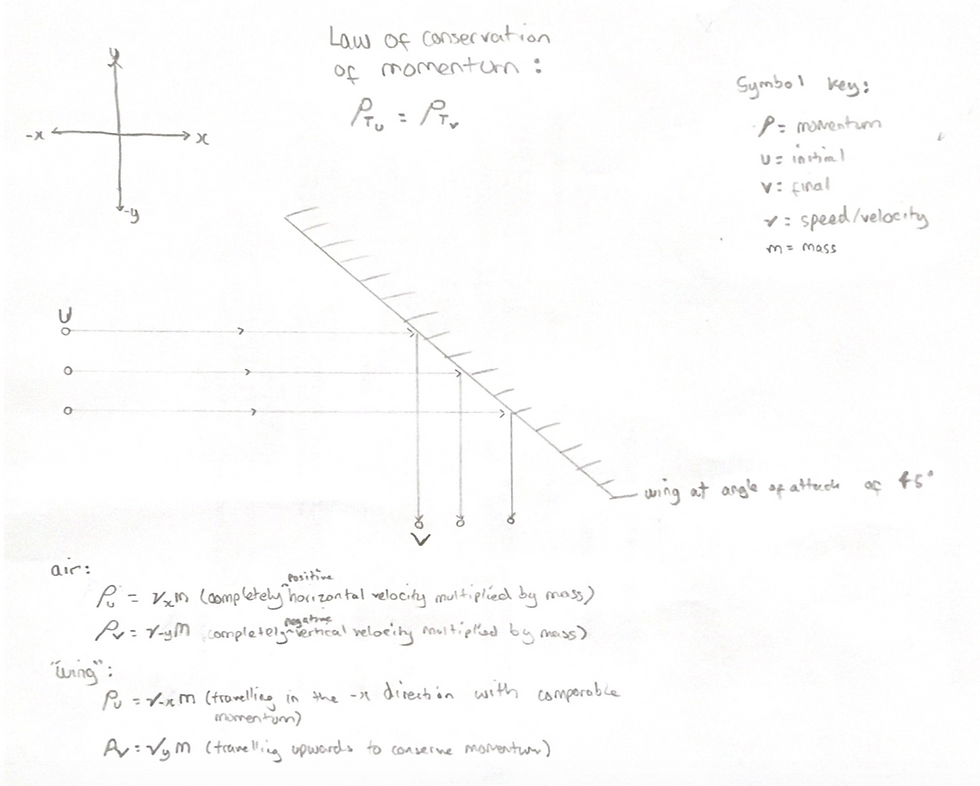 Law of conservation
of momentum :
P_Tu = P_Tv
y
-x
x
-y
Symbol key:
P = momentum
u = initial
v : final
v = speed/velocity
m = mass
U
V
wing at angle of attack of 45°
air:
Pu = Vx m (completely positive horizontal velocity multiplied by mass)
Pv = V-y m (completely negative vertical velocity multiplied by mass)
"wing":
Pu = V-x m (travelling in the -x direction with comparable
momentum)
Pv = Vy m (travelling upwards to conserve momentum)